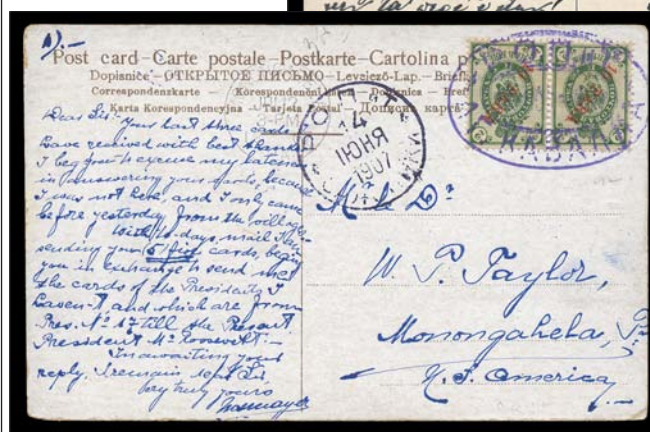 1)-
Post card-Carte postale-Postkarte-Cartolina p
Dopisnice-ОТКРЫТОЕ ПИСЬМО-Levelező-Lap.-Brief
Correspondenzkarte-Korespondenční lístek-Dopisnica-Bref
Karta Korespondencyjna-Tarjeta Postal-Дописна карта
Dear Sir:- Your last three cards
have received with best thanks
I beg you to excuse my lateness
in answering your cards, because
I was not here, and I only came
before yesterday from the village-
With to-days mail I am
sending you 5/five cards, beg
you in exchange to send me
the cards of the Presidents
and which are from
Pres. Nº 17 till the Present
President Mr Roosevelt:-
In awaiting your
reply, I remain dear Sir
Very truly yours
РОПИТ
14
ІЮНЯ
1907
W. P. Taylor,
Monongahela, Pa
N. S. America